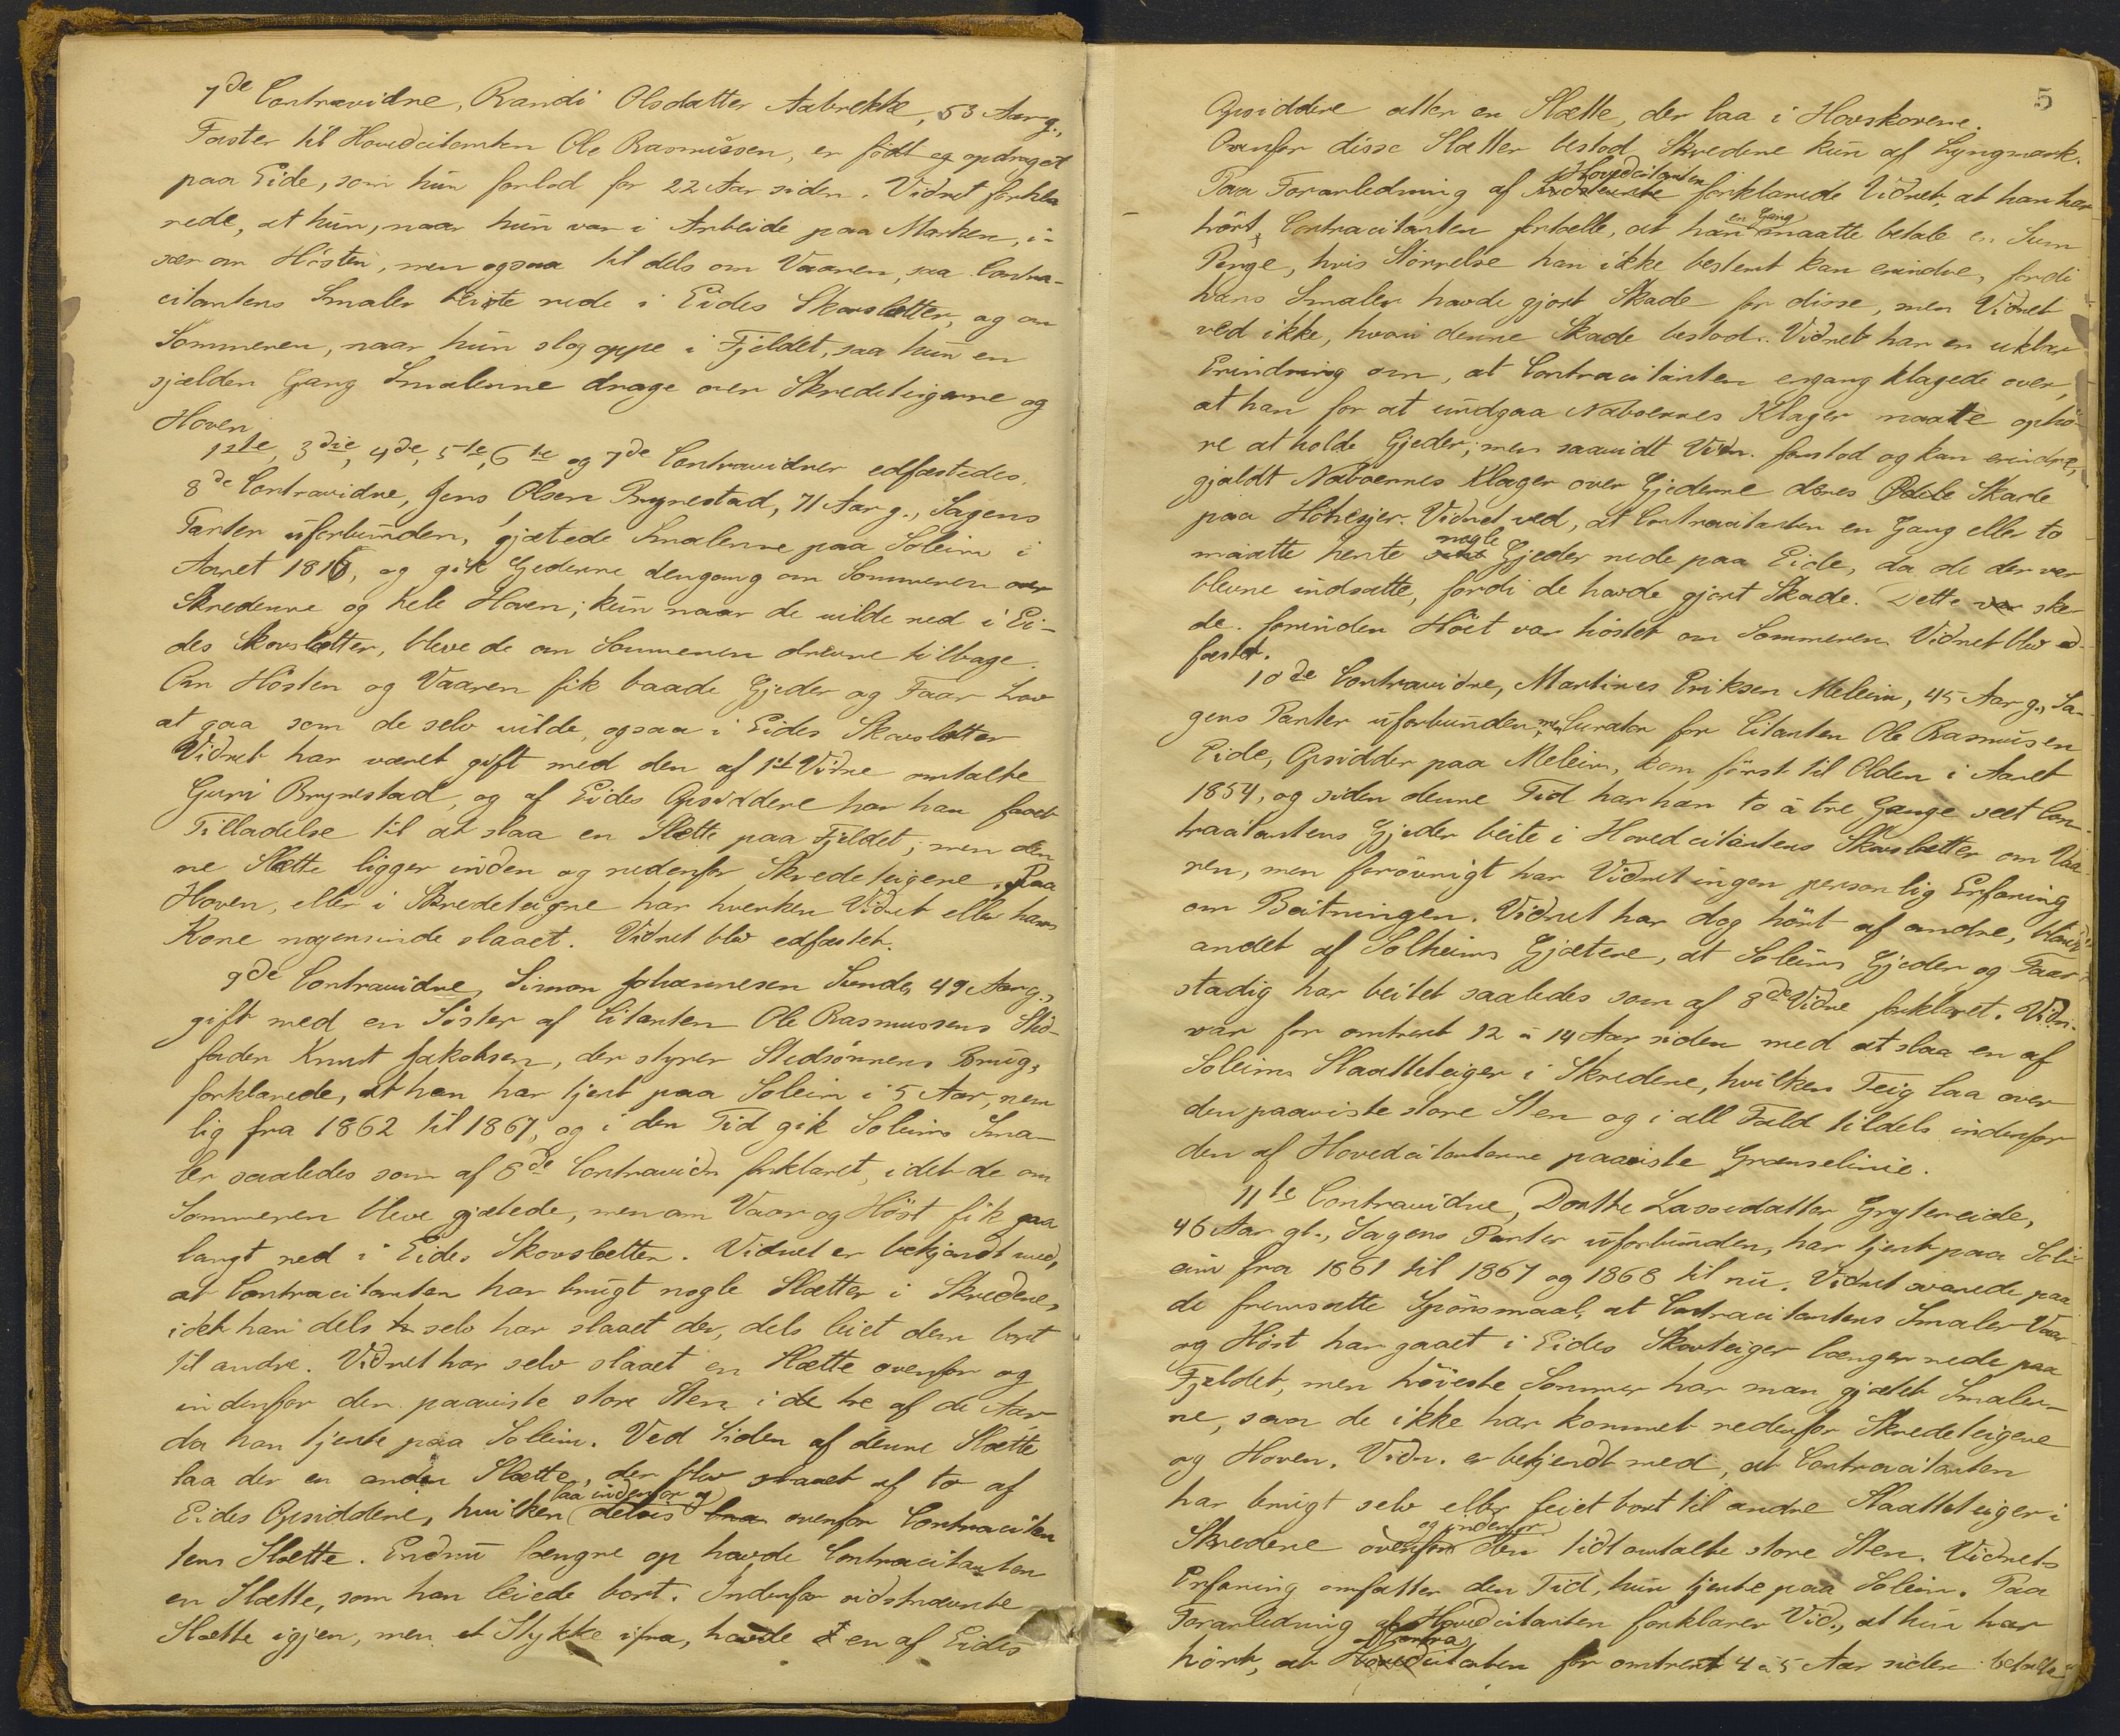 7de Contravidne, Randi Olsdatter Aabrekke, 53 Aar g.,
Faster til Hovedcitanten Ole Rasmussen, er født og opdraget
paa Eide, som hun forlod for 22 Aar siden. Vidnet forkla
rede, at hun, naar hun var i Arbeide paa Marken, i-
sær om Hösten, men ogsaa til dels om Vaaren, saa Contra-
citantens Smaler beite nede i Eides Skovslætter, og om
Sommeren, naar hun slog oppe i Fjeldet, saa hun en
sjælden Gang Smalerne drage over Skredeteigerne og
Hoven.
1ste, 3die, 4de, 5te, 6te og 7de Contravidner edfæstedes.
8de Contravidne, Jens Olsen Brynestad, 71 Aar g., Sagens
Parter uforbunden, gjætede Smalerne paa Soleim i
Aaret 1816, og gik Gjederne dengang om Sommeren over
Skrederne og hele Hoven; kun naar de vilde ned i Ei-
des Skovslætter, bleve de om Sommeren drevne tilbage.
Om Hösten og Vaaren fik baade Gjeder og Faar Lov
at gaa som de selv vilde, ogsaa i Eides Skovslætter
Vidnet har været gift med den af 1ste Vidne omtalte
Guri Brynestad, og af Eides Opsiddere har han faaet
Tilladelse til at slaa en Slætte paa Fjeldet; men den
ne Slætte ligger inden og nedenfor Skredeteigene. Paa
Hoven, eller i Skredeteigne har hverken Vidnet eller hans
Kone nogensinde slaaet. Vidnet blev edfæstet.
9de Contravidne, Simon Johannesen Sunde, 49 Aar g.,
gift med en Söster af Citanten Ole Rasmussens Sted-
fader Knut Jakobsen, der styrer Stedsönnens Brug,
forklarede, at han har tjent paa Soleim i 5 Aar, nem
lig fra 1862 til 1867, og i den Tid gik Soleims Sma-
ler saaledes som af 8de Contravidn forklaret, idet de om
Sommeren bleve gjætede, men om Vaar og Höst fik gaa
langt ned i Eides Skovslætter. Vidnet er bekjendt med,
at Contracitanten har brugt nogle Slætter i Skredene,
idet han dels selv har slaaet der, dels leiet dem bort
til andre. Vidnet har selv slaaet en Slætte ovenfor og
indenfor den paaviste store Sten i de tre af de Aar
da han tjente paa Soleim. Ved Siden af denne Slætte
laa der en anden Slætte, der blev slaaet af to af
laa indenfor og
Eides Opsiddere, hvilken delvis laa ovenfor Contraciten
tens Slætte. Endnu længre op havde Contracitanten
en Slætte, som han leiede bort. Indenfor sidstnævnte
Slætte igjen, men et Stykke ifra, havde en af Eides
5
Opsiddere atter en Slætte, der laa i Hovskorene.
Ovenfor disse Slætter bestod Skredene kun af Lyngmark.
Hovedcitanten
Paa Foranledning af forklarede Vidnet, at han har
en Gang
hört Contracitanten fortælle, at han maatte betale en Sum
Penge, hvis Störrelse han ikke bestemt kan erindre, fordi
hans Smaler havde gjort Skade for disse, men Vidnet
ved ikke, hvori denne Skade bestod. Vidnet har en uklar
Erindring om, at Contracitanten engang klagede over,
at han for at undgaa Naboernes Klager maatte ophö-
re at holde Gjeder; men saavidt Vidn. forstod og kan erindre,
gjaldt Naboernes Klager over Gjederne deres Skade
paa Höhesjer. Vidnet ved, at Contracitanten en Gang eller to
nogle
maatte hente Gjeder nede paa Eide, da de der var
blevne indsatte, fordi de havde gjort Skade. Dette var ske-
de. forinden Höet var höstet om Sommeren. Vidnet blev ed-
fæstet.
10de Contravidne, Martines Eriksen Meleim, 45 Aar g., Sa-
gens Parter uforbunden, men Curator for Citanten Ole Rasmusen
Eide, Opsidder paa Meleim, kom först til Olden i Aaret
1854, og siden denne Tid har han to à tre Gange seet Con-
tracitantens Gjeder beite i Hovedcitantens Skovslætter om Vaa-
ren, men forövrigt har Vidnet ingen personlig Erfaring
om Beitningen. Vidnet har dog hört af andre, blandt
andet af Solheims Gjætere, at Soleims Gjeder og Faar
stadig har beitet saaledes som af 8de Vidne forklaret. Vidn.
var for omtrent 12 à 14 Aar siden med at slaa en af
Soleims Slaatteteiger i Skredene, hvilken Teig laa over
den paaviste store Sten og i all Fald tildels indenfor
den af Hovedcitanterne paaviste Grænselinie.
11te Contravidne, Dorthe Lassedatter Grytereide,
46 Aar gl., Sagens Parter uforbunden, har tjent paa Sol-
eim fra 1861 til 1867 og 1868 til nu. Vidnet svarede paa
de fremsatte Spörsmaal, at Contracitantens Smaler Vaar
og Höst har gaaet i Eides Skovteiger længer nede paa
Fjeldet, men höieste Sommer har man gjætet Smaler-
ne, saa de ikke har kommet nedenfor Skredeteigene
og Hoven. Vidn. er bekjendt med, at Contracitanten
har brugt selv eller leiet bort til andre Slaatteteiger i
og indenfor
Skredene ovenfor den tidtomtalte store Sten. Vidnets
Erfaring omfatter den Tid, hun tjente paa Soleim. Paa
Foranledning af Hovedcitanten forklarer Vid., at hun har
Contra
hört, at Hovedcitanten for omtrent 4 à 5 Aar siden betalte